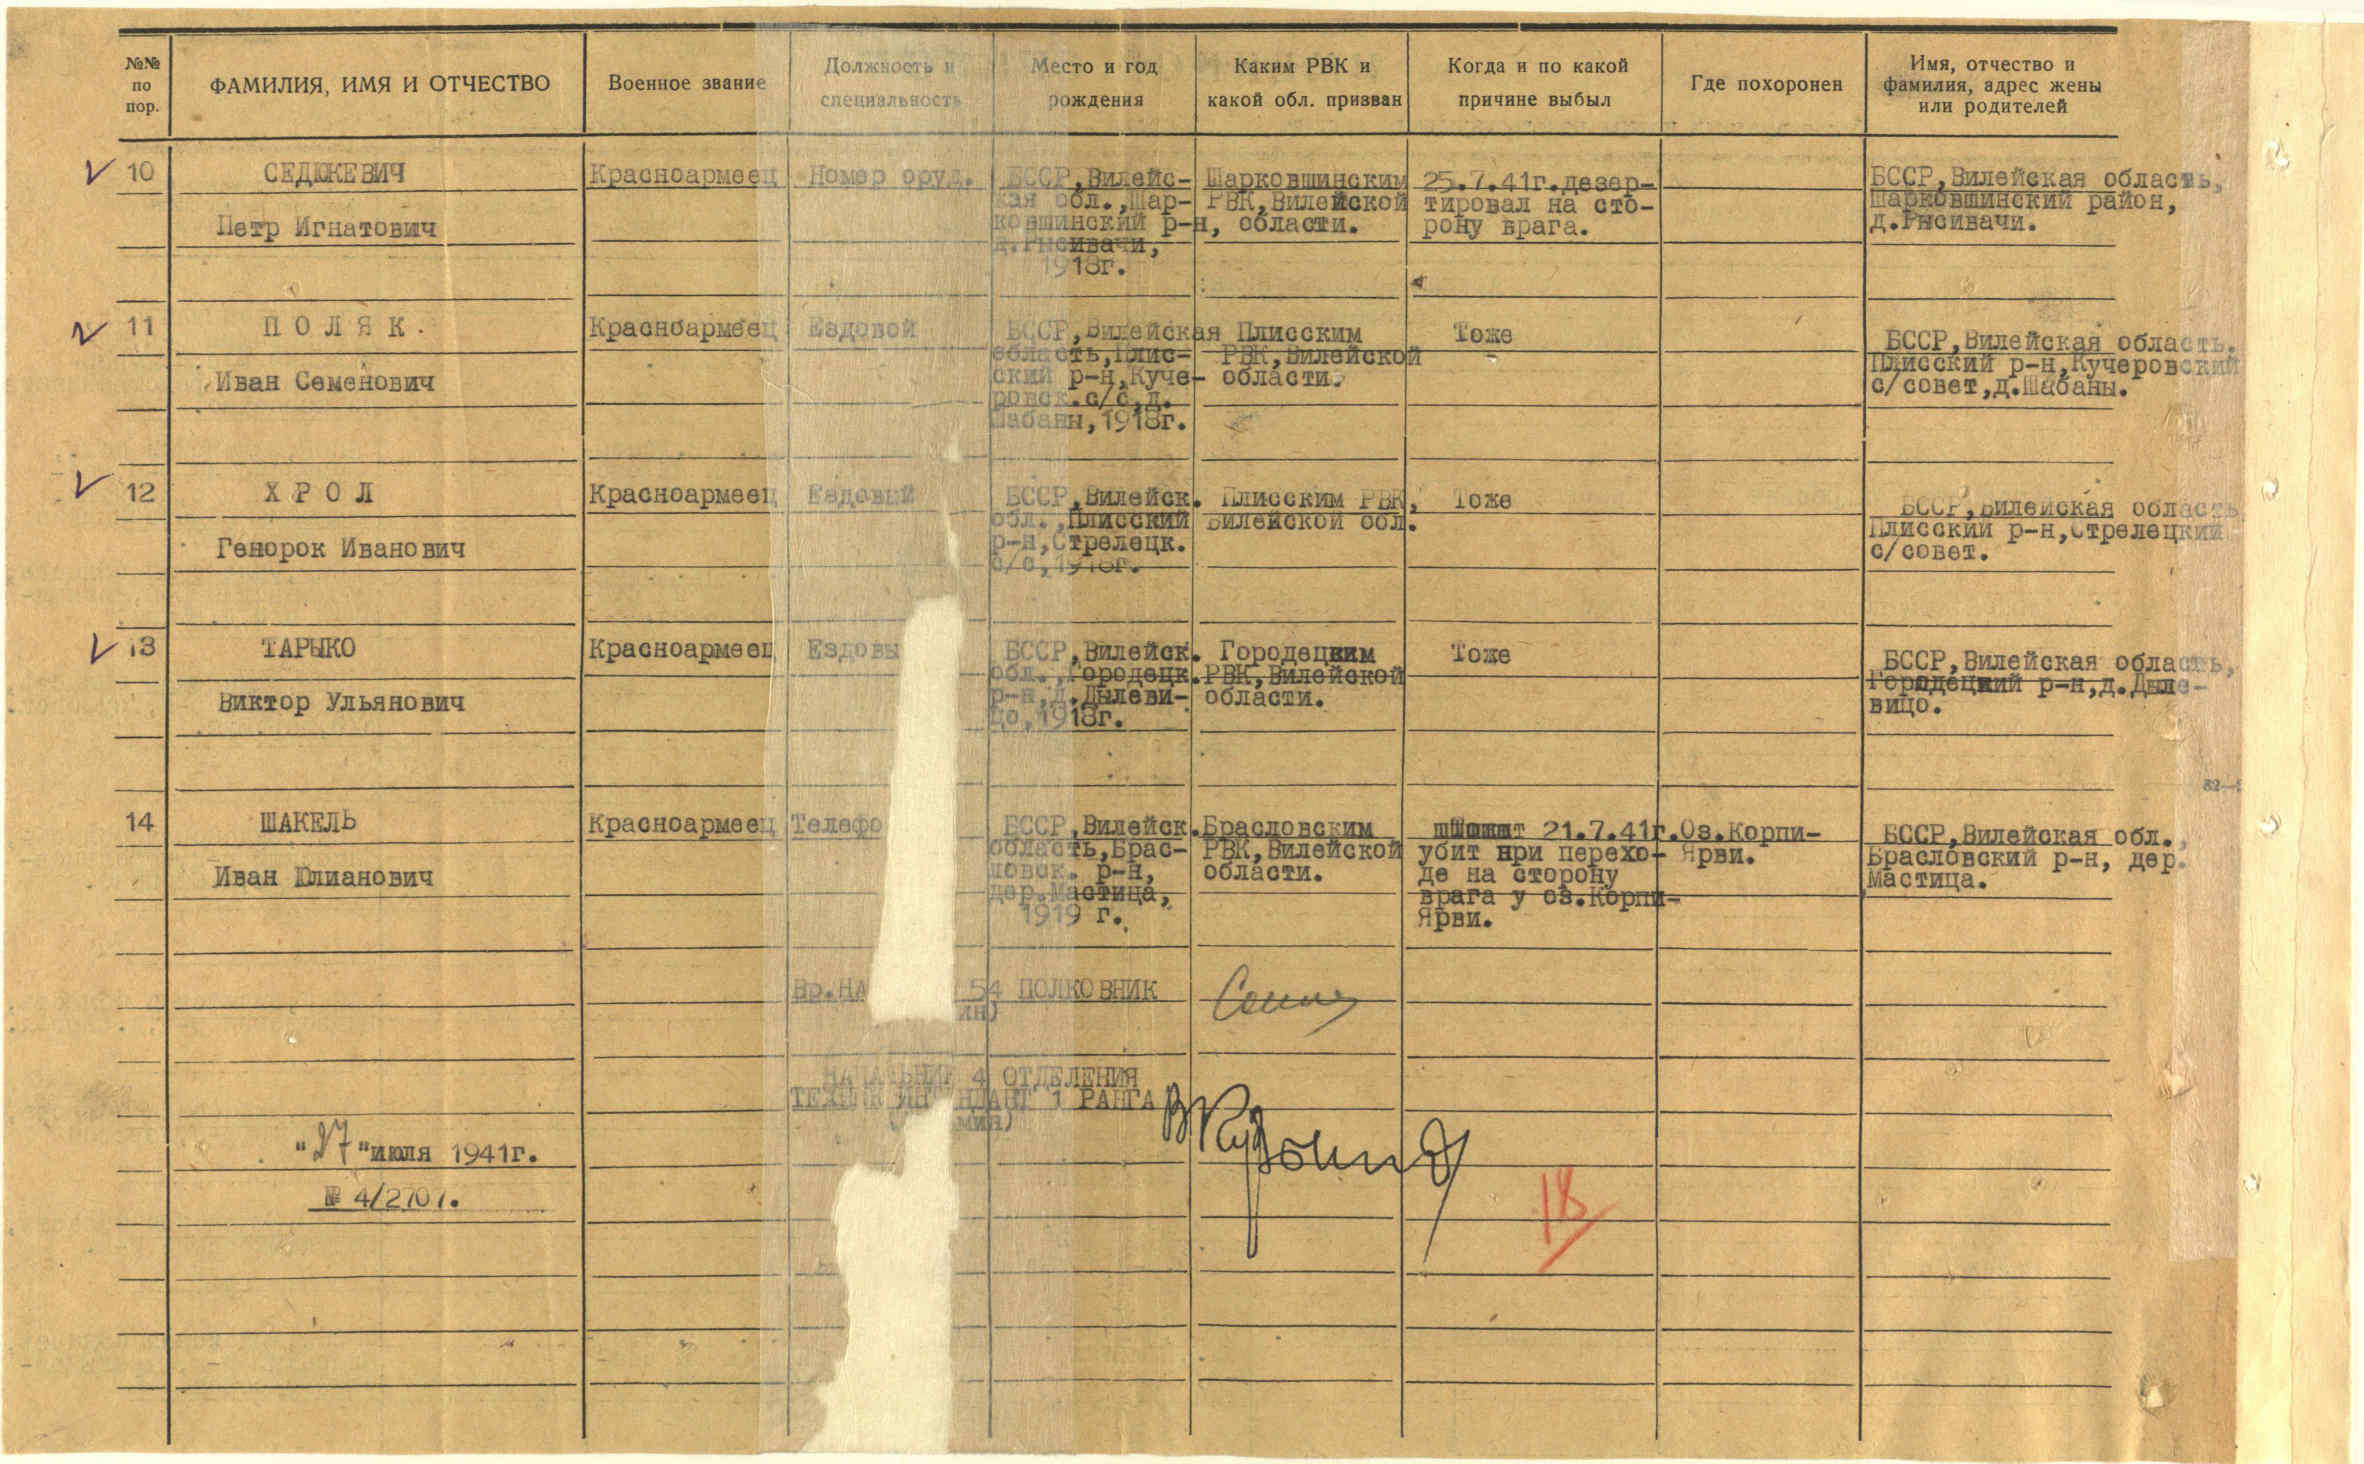 №№ по пор.
ФАМИЛИЯ, ИМЯ И ОТЧЕСТВО
Военное звание
Должность и специальность
Место и год рождения
Каким РВК и какой обл. призван
Когда и по какой причине выбыл
Где похоронен
Имя, отчество и фамилия, адрес жены или родителей
10
СЕДЮКЕВИЧ
Петр Игнатович
Красноармеец
Номер оруд.
БССР,Вилейс-
кая обл.,Шар-
ковшинский р-н,
д.Рысивачи,
1918г.
Шарковшинским
РВК,Вилейской
области.
25.7.41г.дезер-
тировал на сто-
рону врага.
БССР,Вилейская область,
Шарковшинский район,
д.Рысивачи.
11
ПОЛЯК.
Иван Семенович
Красноармеец
Ездовой
БССР,Вилейская
область,Плис-
ский р-н,Куче-
ровск.с/с,д.
Шабаны,1918г.
Плисским
РВК,Вилейской
области.
Тоже
БССР,Вилейская область.
Плисский р-н,Кучеровский
с/совет,д.Шабаны.
12
ХРОЛ
Генорок Иванович
Красноармеец
Ездовый
БССР,Вилейск.
обл.,Плисский
р-н,Стрелецк.
с/с,1918г.
Плисским РВК,
Вилейской обл.
Тоже
БССР,Вилейская область
Плисский р-н,Стрелецкий
с/совет.
13
ТАРЫКО
Виктор Ульянович
Красноармеец
Ездовы
БССР,Вилейск.
обл.,Городецк.
р-н,д.Дылеви-
цо,1918г.
Городецким
РВК,Вилейской
области.
Тоже
БССР,Вилейская область,
Городецкий р-н,д.Дыле-
вицо.
14
ШАКЕЛЬ
Иван Юлианович
Красноармеец
Телефо
БССР,Вилейск.
область,Брас-
ловск. р-н,
дер.Мастица,
1919 г.
Брасловским
РВК,Вилейской
области.
21.7.41г.
убит при перехо-
де на сторону
врага у оз.Корпи-
Ярви.
Оз.Корпи-
Ярви.
БССР,Вилейская обл.,
Брасловский р-н, дер.
Мастица.
Вр.НА 54 ПОЛКОВНИК
ин)
НАЧАЛЬНИК 4 ОТДЕЛЕНИЯ
ТЕХНИК ИНТЕНДАНТ 1 РАНГА
"27"июля 1941г.
№ 4/2701.
18